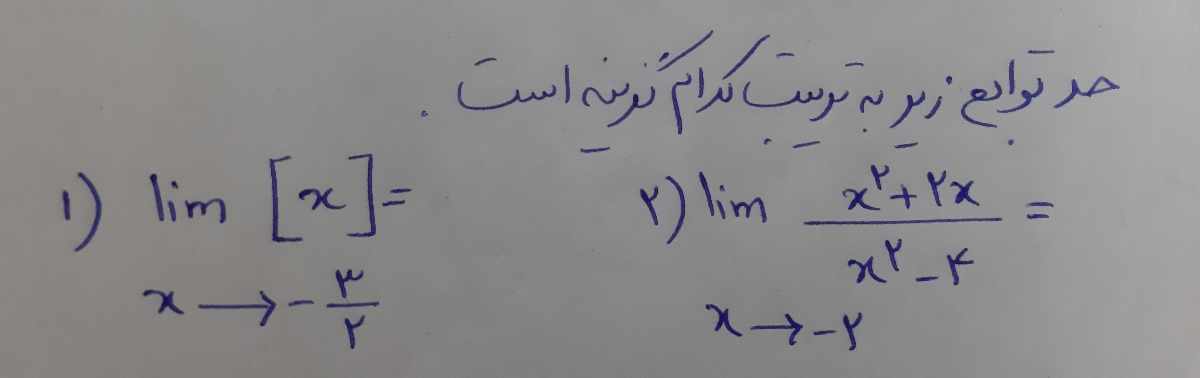 حد توابع زیر به ترتیب کدام گزینه است.
۱) lim [x] =
x → -۳/۲
۲) lim (x^۲ + ۲x)/(x^۲ - ۴) =
x → -۲